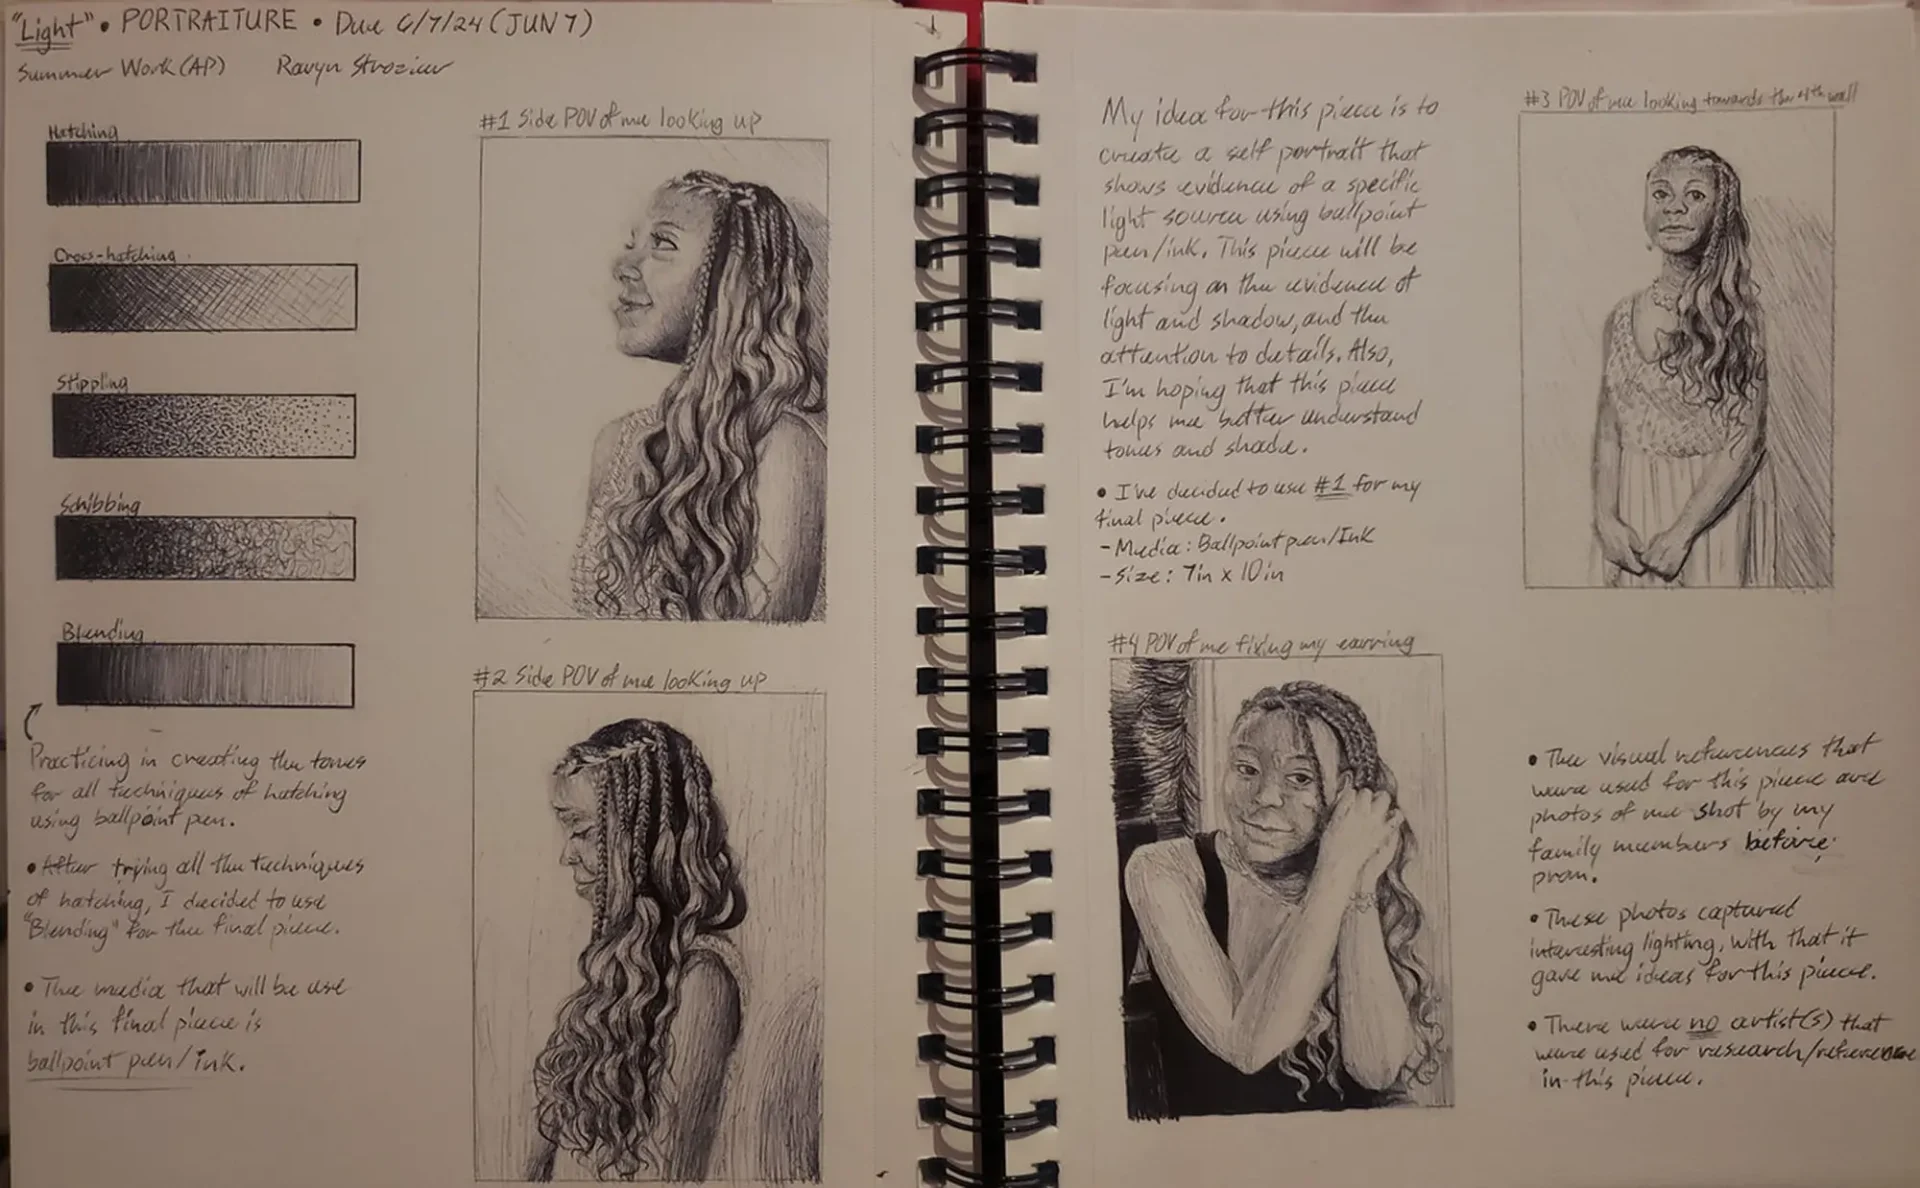 "Light" • PORTRAITURE • Due 6/7/24 (JUN 7)
Summer Work (AP) Ravyn Strozier
Hatching
Cross-hatching
Stippling
Schibbing
Blending
Practicing in creating the tones
for all techniques of hatching
using ballpoint pen.
• After trying all the techniques
of hatching, I decided to use
"Blending" for the final piece.
• The media that will be use
in this final piece is
ballpoint pen/ink.
#1 Side POV of me looking up
#2 Side POV of me looking up
My idea for this piece is to
create a self portrait that
shows evidence of a specific
light source using ballpoint
pen/ink. This piece will be
focusing on the evidence of
light and shadow, and the
attention to details. Also,
I'm hoping that this piece
helps me better understand
tones and shade.
• I've decided to use #1 for my
final piece.
- Media: Ballpoint pen/Ink
- Size: 7in x 10in
#4 POV of me fixing my earring
#3 POV of me looking towards the 4th wall
• The visual references that
were used for this piece are
photos of me shot by my
family members before
prom.
• These photos captured
interesting lighting, with that it
gave me ideas for this piece.
• There were no artist(s) that
were used for research/reference
in this piece.